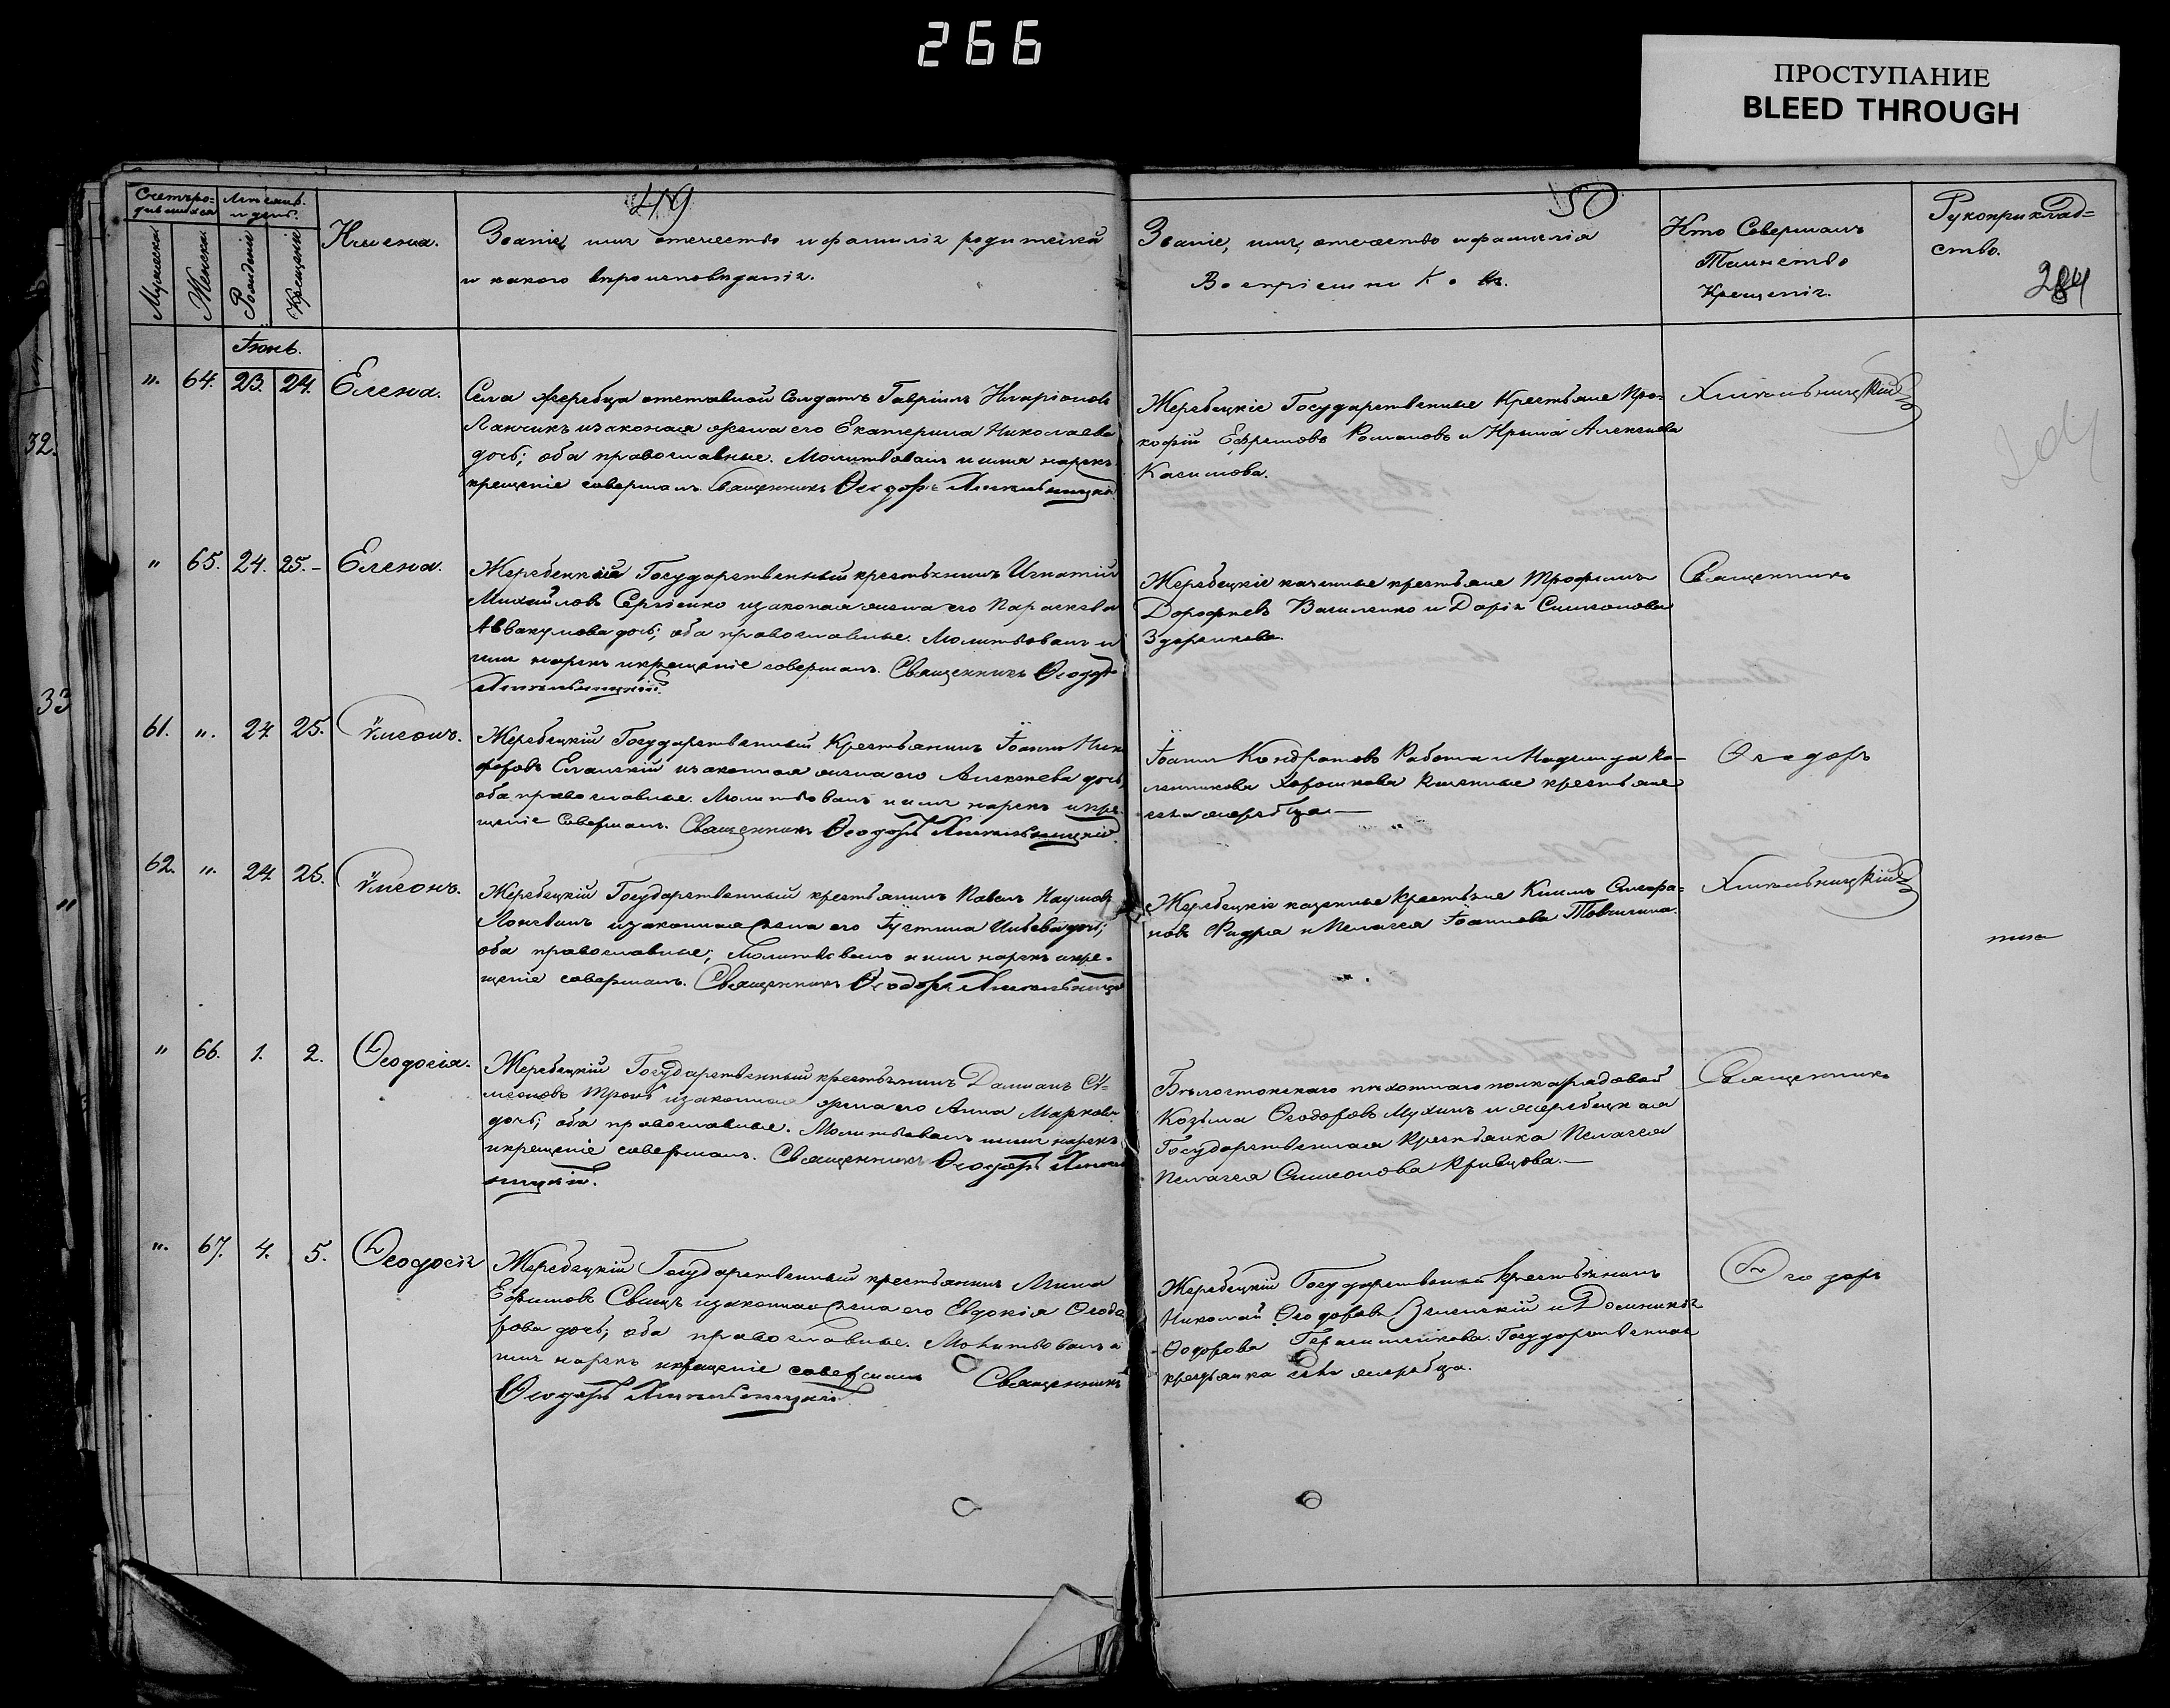 266
ПРОСТУПАНИЕ
BLEED THROUGH
49
50
Счетъ ро-
дившихся
Мѣсяцъ
и день.
Мужеска.
Женска.
Рожденiя
Крещенiя
Имена.
Званiе, имя отечество и фамилiя родителей
и какого вѣроисповѣданiя.
Званiе, имя, отечество и фамилiя
Воспрiемниковъ.
Кто Совершалъ
Таинство
Крещенiя.
Рукоприклад=
ство.
284
Iюнь.
„ 64. 23. 24. Елена.
Села Жеребца отставной Солдатъ Гаврiилъ Иларiоновъ
Ланчикъ и законная жена его Екатерина Николаева
дочь; оба православные. Молитвовалъ и имя нарекъ
крещенiе совершалъ Священникъ Ѳеодоръ Хмѣльницкiй
Жеребецкiе Государственные Крестьяне Про-
кофiй Ефремовъ Романовъ и Ирина Алексѣева
Касимова.
Хмѣльницкiй
32.
„ 65. 24. 25.– Елена.
Жеребецкiй Государственный крестьянинъ Игнатiй
Михайловъ Сергiенко и законная жена его Параскева
Аввакумова дочь; оба православные. Молитвовалъ и
имя нарекъ и крещенiе совершалъ. Священникъ Ѳеодоръ
Хмѣльницкiй.
Жеребецкiе казенные крестьяне Трофимъ
Дорофеевъ Василенко и Дарiя Симеонова
Здорикова.
Священникъ
33
61. „. 24 25. Ѵмеонъ.
Жеребецкiй Государственный Крестьянинъ Iоаннъ Ники
форовъ Еланскiй и законная жена его Алексѣева дочь,
оба православные. Молитвовалъ и имя нарекъ и кре-
щенiе совершалъ. Священникъ Ѳеодоръ Хмѣльницкiй.
Iоаннъ Кондратовъ Работа и Надежда Ка-
Хорошкова Казенные крестьяне
села Жеребца.—
Ѳеодоръ
62. „. 24 25. Ѵмеонъ.
Жеребецкiй Государственный крестьянинъ Павелъ Наумовъ
Лонгвинъ и законная жена его Iустина Ильева дочь;
оба православные; Молитвовалъ и имя нарекъ и кре-
щенiе совершалъ. Священникъ Ѳеодоръ Хмѣльницкiй
Жеребецкiе казенные крестьяне Климъ Стефа=
новъ Фидра и Пелагея Iоаннова Товчигина.
Хмѣльницкiй
„ 66. 1. 2. Ѳеодосiя.
Жеребецкiй Государственный крестьянинъ Дамiанъ Сѵ-
меоновъ Тронь и законная жена его Анна Маркова
дочь; оба православные. Молитвовалъ имя нарекъ
и крещенiе совершалъ. Священникъ Ѳеодоръ Хмѣль
ницкiй.
Бѣлостокскаго пѣхотнаго полка рядовой
Козьма Ѳеодоровъ Мухинъ и жеребецкая
Государственная Крестьянка Пелагея
Пелагея Симеонова Кривцова.—
Священникъ
„. 67. 4. 5. Ѳеодосiя
Жеребецкiй Государственный крестьянинъ Мина
Ефимовъ Свищъ и законная жена его Евдокiя Ѳеодо
рова дочь; оба православные. Молитвовалъ и
имя нарекъ и крещенiе совершалъ Священникъ
Ѳеодоръ Хмѣльницкiй
Жеребецкiй Государственный крестьянинъ
Николай Ѳеодоровъ Зеленскiй и Домникiя
Ѳеодорова Герасименкова. Государственная
крестьянка села Жеребца.
Ѳеодоръ